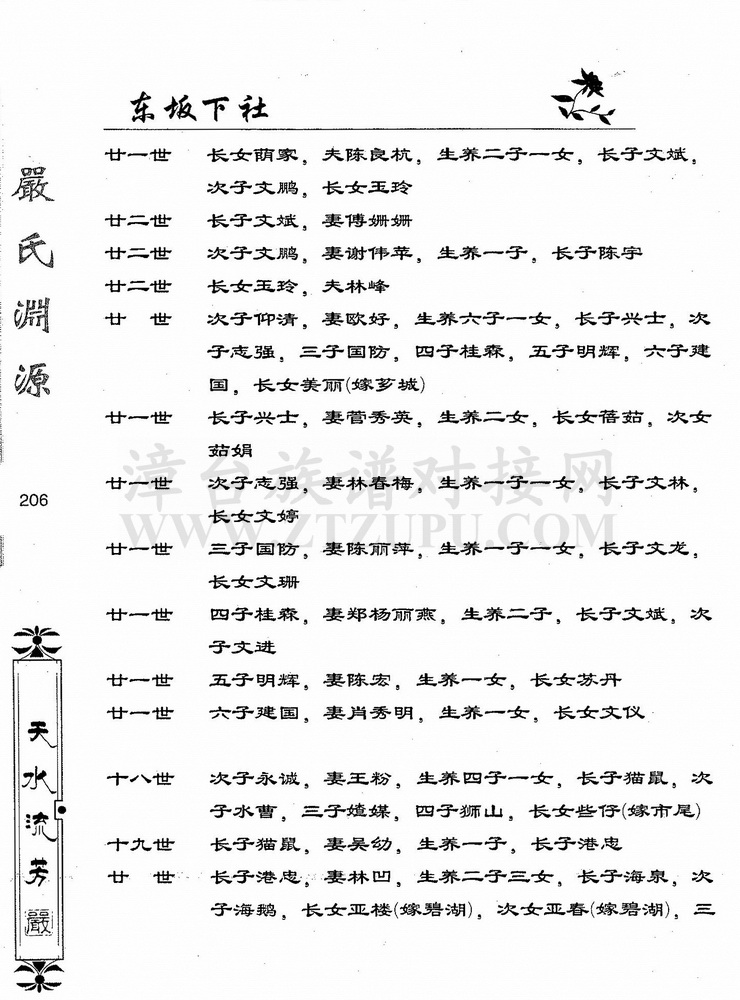 东坂下社
廿一世 长女萌家，夫陈良杭，生养二子一女，长子文斌，
次子文鹏，长女玉玲
廿二世 长子文斌，妻傅姗姗
廿二世 次子文鹏，妻谢伟苹，生养一子，长子陈宇
廿二世 长女玉玲，夫林峰
廿 世 次子仰清，妻欧好，生养六子一女，长子兴士，次
子志强，三子国防，四子桂森，五子明辉，六子建
国，长女美丽(嫁芗城)
廿一世 长子兴士，妻菅秀英，生养二女，长女蓓茹，次女
茹娟
廿一世 次子志强，妻林春梅，生养一子一女，长子文林，
长女文婷
廿一世 三子国防，妻陈丽萍，生养一子一女，长子文龙，
长女文珊
廿一世 四子桂森，妻郑杨丽燕，生养二子，长子文斌，次
子文进
廿一世 五子明辉，妻陈宏，生养一女，长女苏丹
廿一世 六子建国，妻肖秀明，生养一女，长女文仪
十八世 次子永诚，妻王粉，生养四子一女，长子猫鼠，次
子水曹，三子媎媒，四子狮山，长女些仔(嫁市尾)
十九世 长子猫鼠，妻吴幼，生养一子，长子港忠
廿 世 长子港忠，妻林凹，生养二子三女，长子海泉，次
子海鹅，长女亚楼(嫁碧湖)，次女亚春(嫁碧湖)，三
嚴氏淵源
206
天水流芳
嚴
漳台族谱对接网
WWW.ZTZUPU.COM